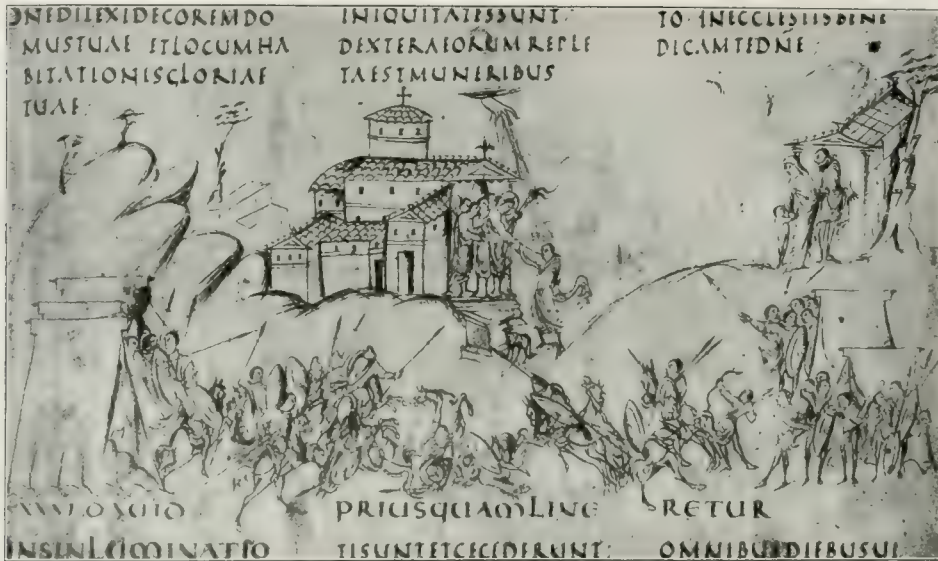 DNEDILEXIDECOREMDO
MUSTUAE ETLOCUMHA
BITATIONISGLORIAE
TUAE:
INIQUITATESSUNT:
DEXTERAEORUMREPLE
TAESTMUNERIBUS
TO· INECCLESIISBENE
DICAMTEDNE·
PRIUSQUAMLINE RETUR
TISUNTETCECIDERUNT:
OMNIBUSDIEBUSUI